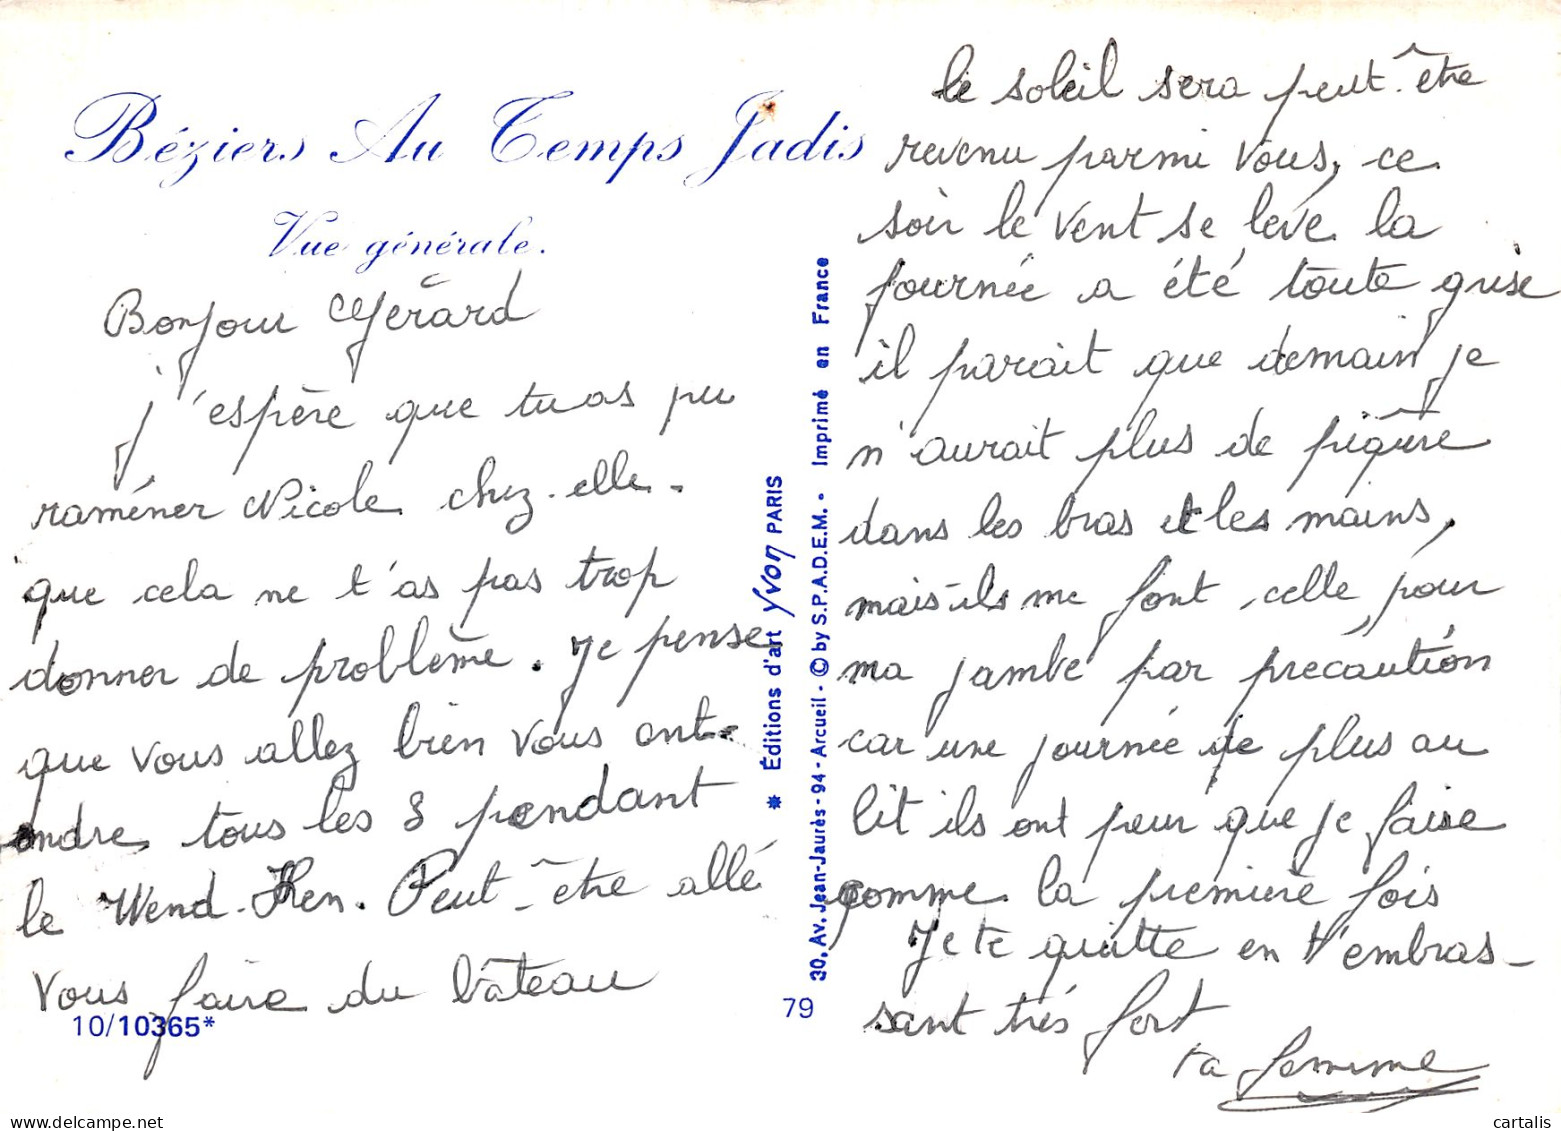 Béziers Au Temps Jadis
Vue générale.
Bonjour Gérard
j'espère que tu as pu
raméner Nicole chez-elle.
que cela ne t'as pas trop
donner de problème. Je pense
que vous allez bien vous ent-
endre tous les 3 pendant
le Wend-Hen. Peut-être allé
vous faire du bâteau
10/10365*
79
* Éditions d'art YVON PARIS
30, Av. Jean-Jaurès - 94 - Arcueil - © by S.P.A.D.E.M. - Imprimé en France
le soleil sera peut-être
revenu parmi vous, ce
soir le vent se lève la
journée a été toute grise
il parait que demain je
n'aurait plus de piqûre
dans les bras et les mains,
mais ils me font celle pour
ma jambe par précaution
car une journée de plus au
lit ils ont peur que je faise
comme la première fois
Je te quitte en t'embras-
sant très fort
ta femme
www.delcampe.net
cartalis